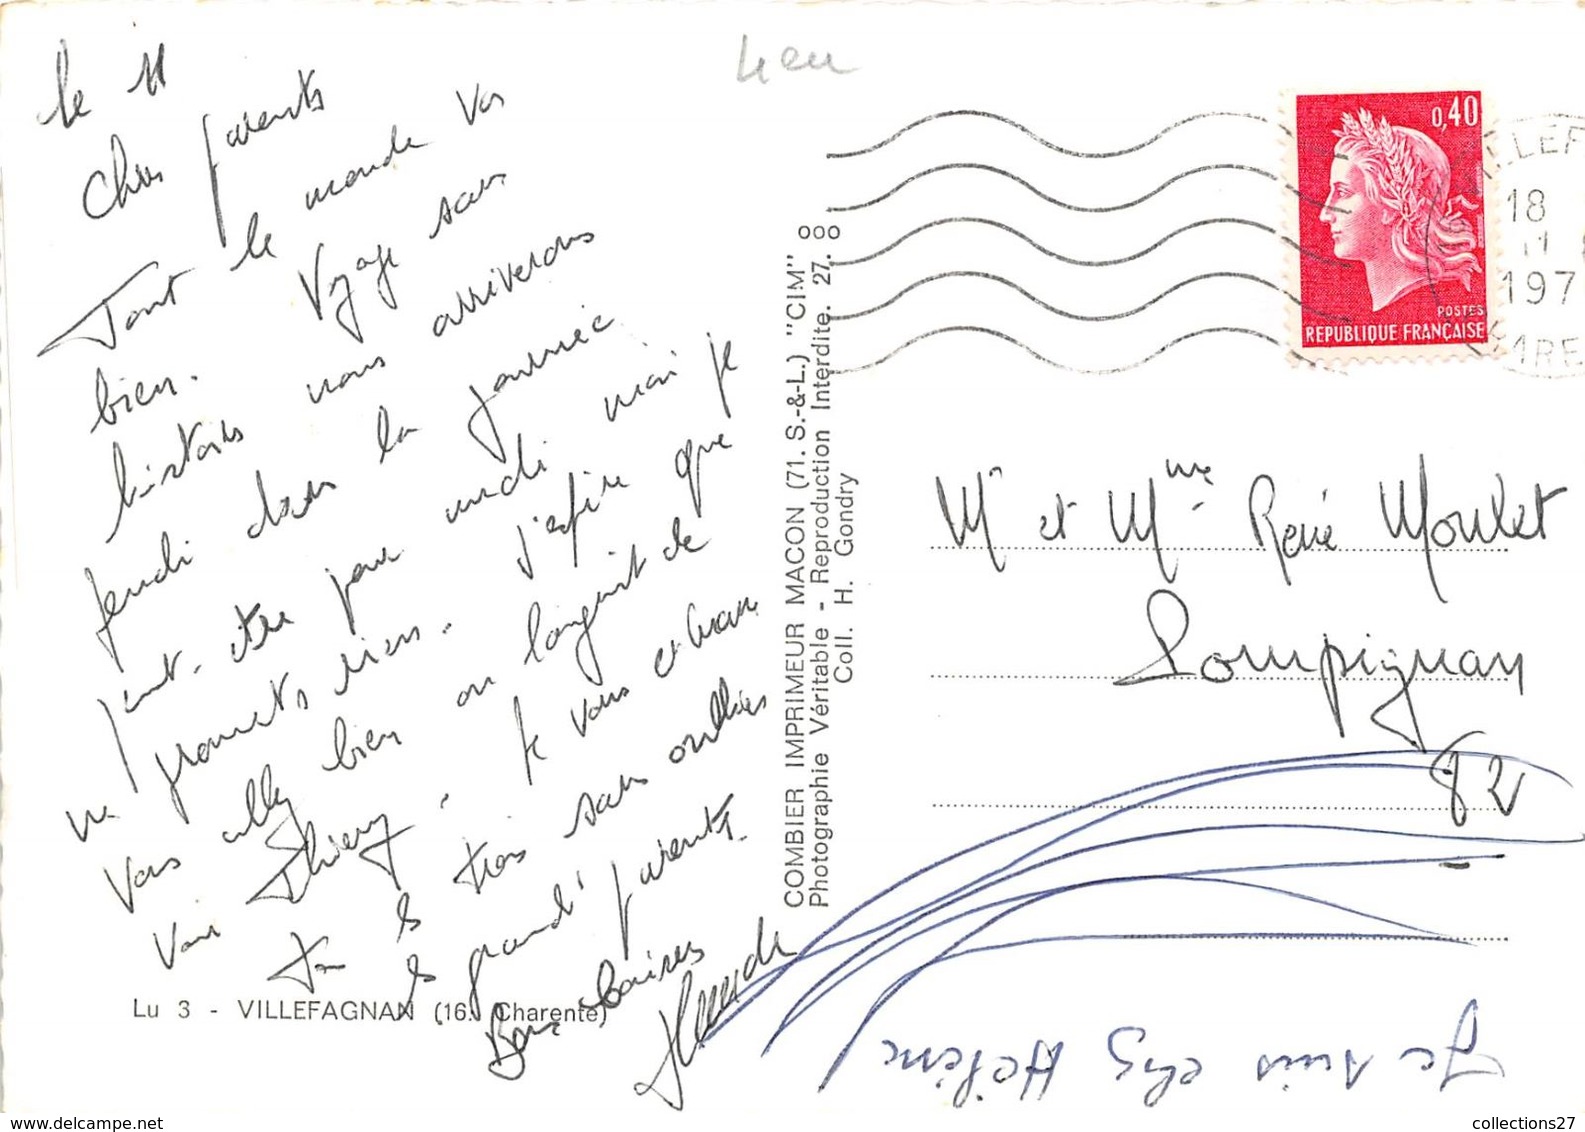 le 11
Chers parents
Tout le monde va
bien. Voyage sans
histoires nous arriverons
jeudi dans la journée
peut-être pour midi mais je
ne promets rien. J'espère que
vous allez bien on languit de
voir Thierry. Je vous embrasse
tous les trois sans oublier
les grand' parents.
Bons baisers
Lu 3 - VILLEFAGNAN (16. Charente)
COMBIER IMPRIMEUR MACON (71. S.-&-L.) "CIM"
Photographie Véritable - Reproduction Interdite. 27.
Coll. H. Gondry
0,40
POSTES
REPUBLIQUE FRANÇAISE
18
11
197
Mr et Mme René Moulet
Pompignan
82
Je suis chez Hélène
collections27